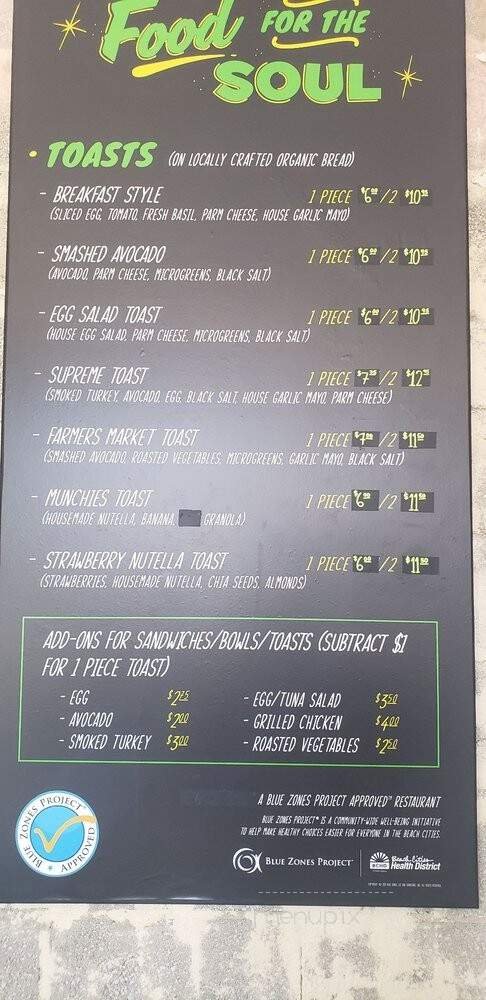 Food FOR THE
SOUL
• TOASTS (ON LOCALLY CRAFTED ORGANIC BREAD)
- BREAKFAST STYLE 1 PIECE $6⁰⁰/2 $10
(SLICED EGG, TOMATO, FRESH BASIL, PARM CHEESE, HOUSE GARLIC MAYO)
- SMASHED AVOCADO 1 PIECE $6⁰⁰/2 $10
(AVOCADO, PARM CHEESE, MICROGREENS, BLACK SALT)
- EGG SALAD TOAST 1 PIECE $6⁰⁰/2 $10
(HOUSE EGG SALAD, PARM CHEESE, MICROGREENS, BLACK SALT)
- SUPREME TOAST 1 PIECE $7/2 $12
(SMOKED TURKEY, AVOCADO, EGG, BLACK SALT, HOUSE GARLIC MAYO, PARM CHEESE)
- FARMERS MARKET TOAST 1 PIECE $7/2 $11
(SMASHED AVOCADO, ROASTED VEGETABLES, MICROGREENS, GARLIC MAYO, BLACK SALT)
- MUNCHIES TOAST 1 PIECE $6/2 $11
(HOUSEMADE NUTELLA, BANANA, GRANOLA)
- STRAWBERRY NUTELLA TOAST 1 PIECE $6/2 $11
(STRAWBERRIES, HOUSEMADE NUTELLA, CHIA SEEDS, ALMONDS)
ADD-ONS FOR SANDWICHES/BOWLS/TOASTS (SUBTRACT $1
FOR 1 PIECE TOAST)
- EGG $2²⁵
- AVOCADO $2⁰⁰
- SMOKED TURKEY $3⁰⁰
- EGG/TUNA SALAD $3⁵⁰
- GRILLED CHICKEN $4⁰⁰
- ROASTED VEGETABLES $2⁵⁰
BLUE ZONES PROJECT
APPROVED
A BLUE ZONES PROJECT APPROVED™ RESTAURANT
BLUE ZONES PROJECT® IS A COMMUNITY-WIDE WELL-BEING INITIATIVE
TO HELP MAKE HEALTHY CHOICES EASIER FOR EVERYONE IN THE BEACH CITIES.
BLUE ZONES PROJECT
Beach Cities
Health District
menupix